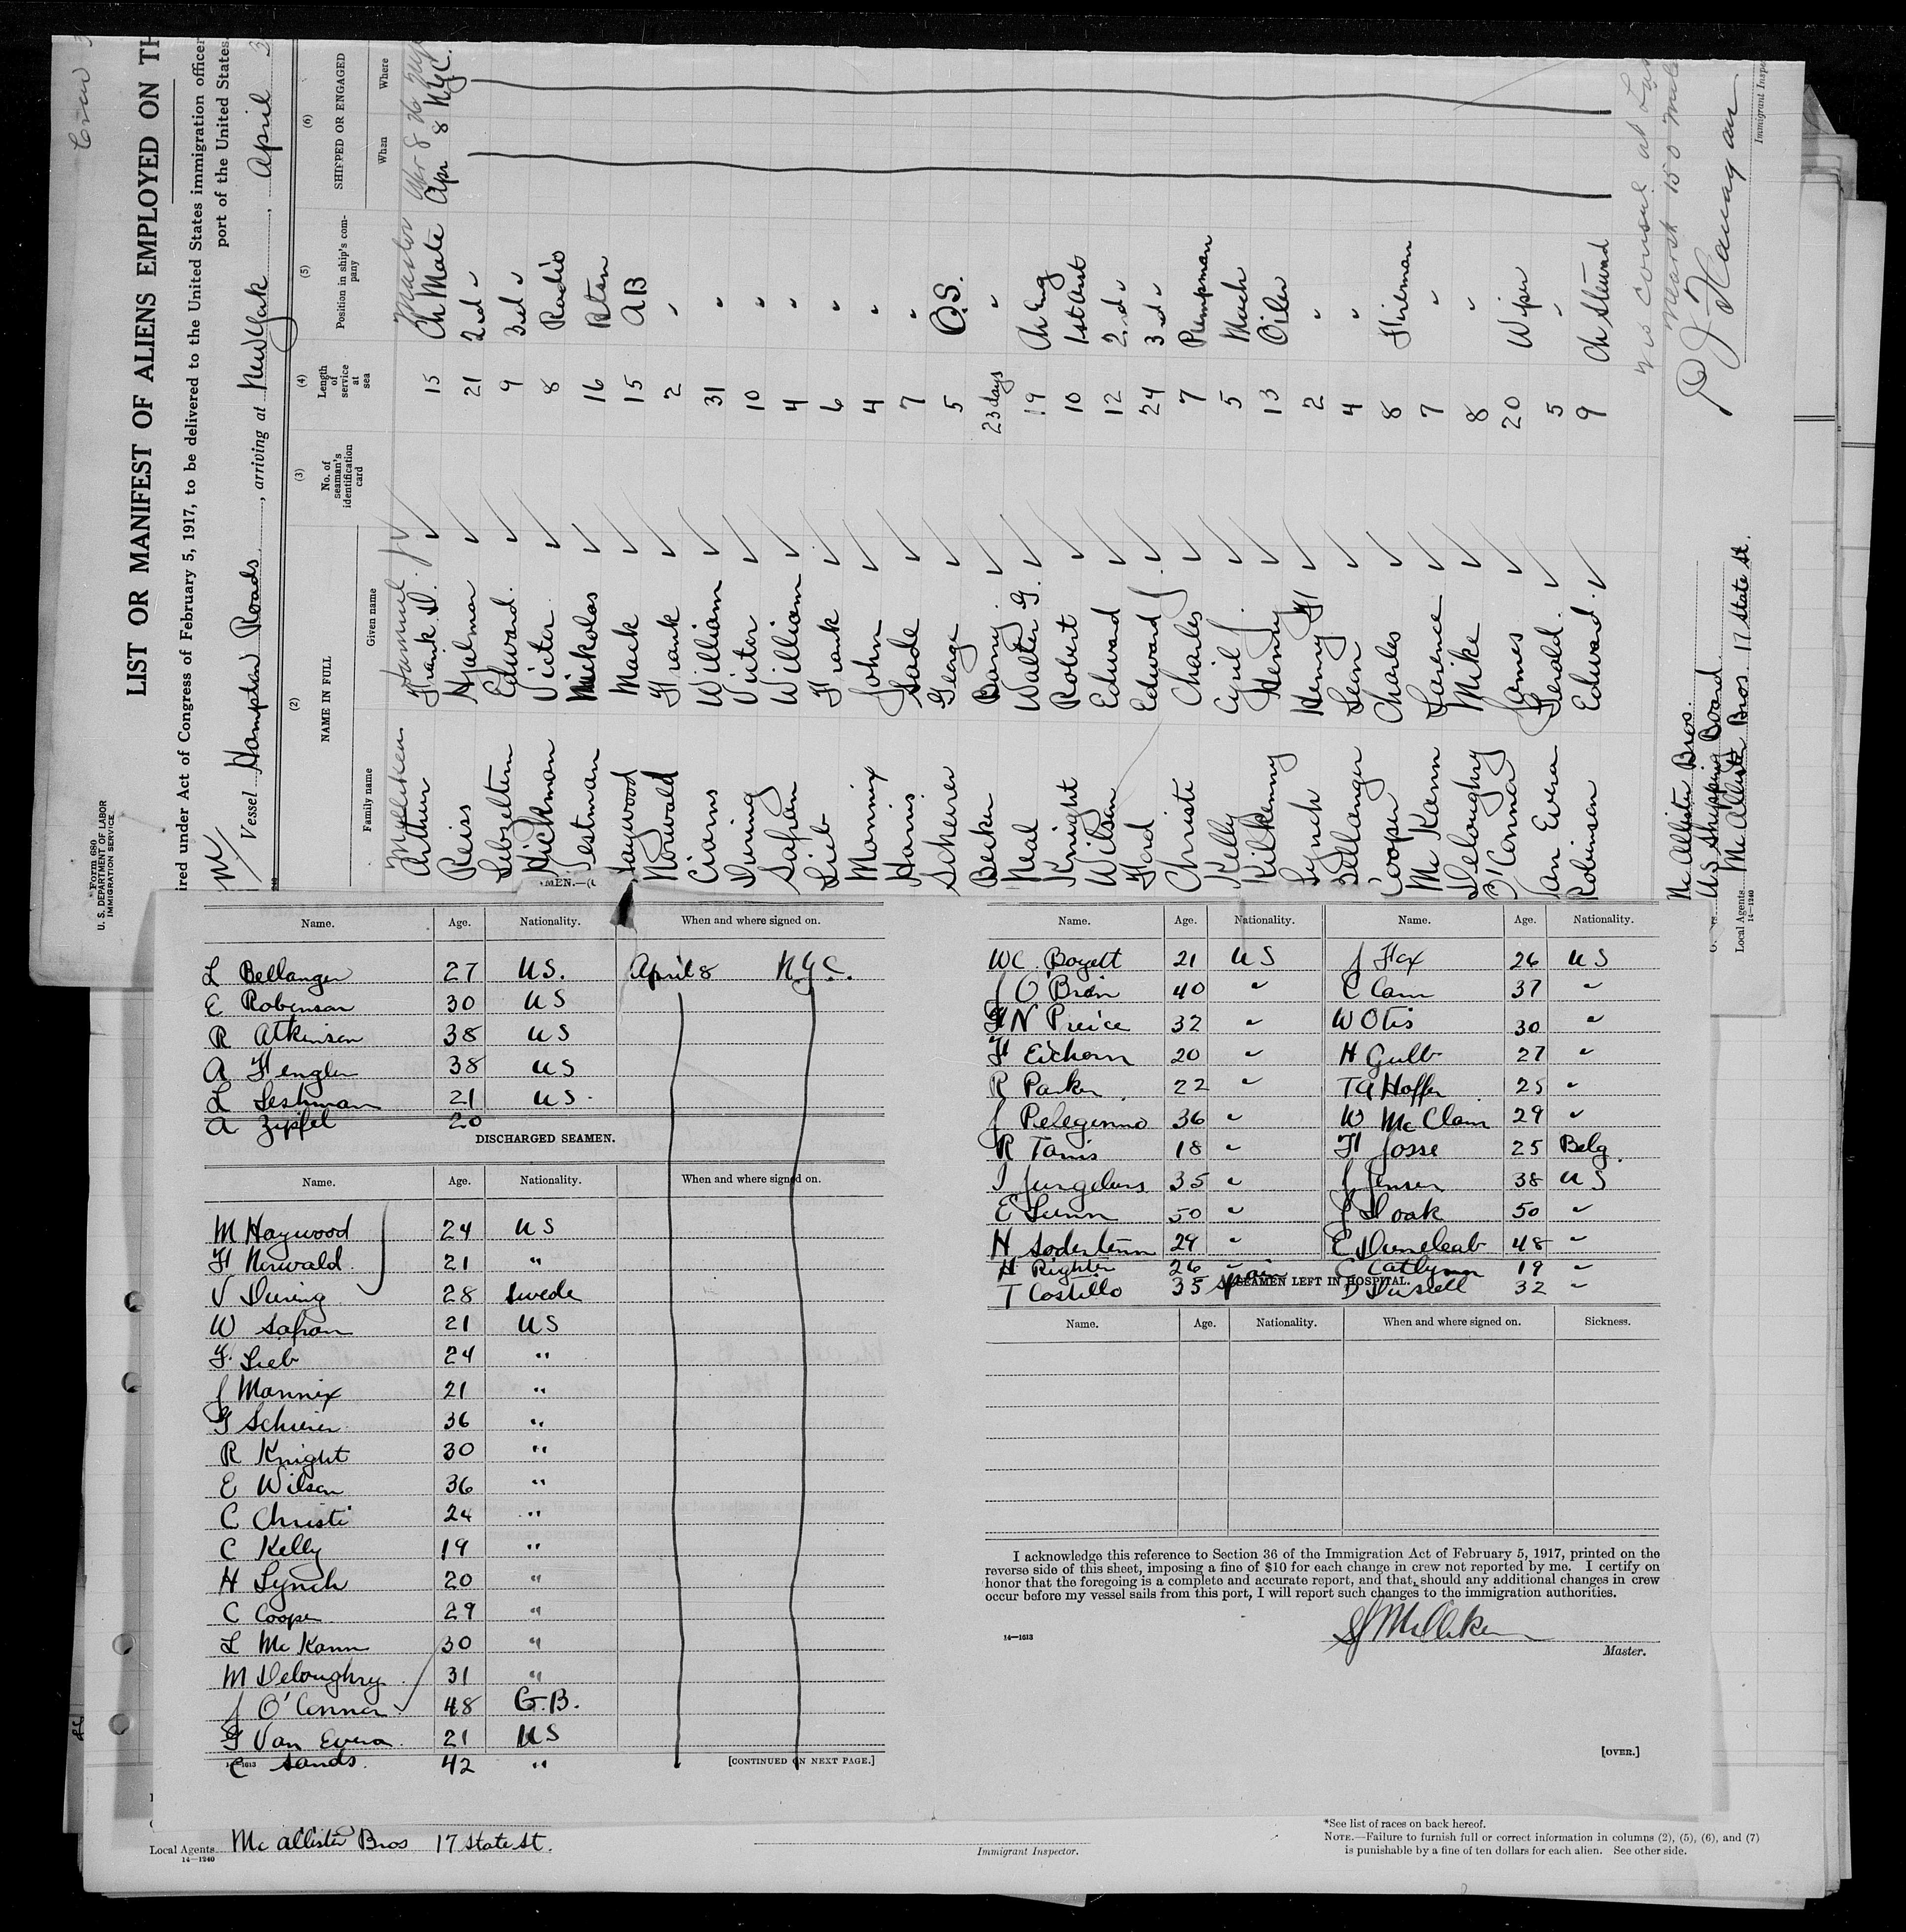 Form 680
U. S. DEPARTMENT OF LABOR
IMMIGRATION SERVICE
LIST OR MANIFEST OF ALIENS EMPLOYED ON TH
ired under Act of Congress of February 5, 1917, to be delivered to the United States immigration officer
port of the United States.
Vessel Hampton Roads, arriving at New York, April 3
(2) (3) (4) (5) (6)
NAME IN FULL No. of seaman's identification card Length of service at sea Position in ship's company SHIPPED OR ENGAGED
Family name Given name When Where
Master Apr 8 26
Arthur Frank D. 15 Ch Mate Apr 8 N.Y.C.
Reiss Hjalmar 21 2nd "
Lebzeltern Edward. 9 3rd "
Hickman Victor 8 Radio
Vestman Nickolas 16 Btsn
Haywood Mack 15 AB
Norwald Frank 2 "
Ciarns William 31 "
During Victor 10 "
Safran William 4 "
Lieb Frank 6 "
Mannix John 4 "
Harris Sade 7 "
Scherer George 5 O.S.
Becker Barny. 23 days "
Neal Walter G. 19 Ch Eng
Knight Robert 10 1st Asst
Wilson Edward 12 2nd "
Ford Edward J. 24 3rd "
Christe Charles 7 Pumpman
Kelly Cyril J. 5 Mach
Kilkenny Henry 13 Oiler
Lynch Henry H 2 "
Bellanger Leon 4 "
Cooper Charles 8 Fireman
McKann Larence 7 "
Deloughry Mike 8 "
O'Connor James 20 Wiper
Van Evera Gerald. 5 "
Robinson Edward. 9 Ch Steward
No Consul at
P J Flanagan
Immigrant Inspe
McAllister Bros.
US Shipping Board
Local Agents McAllister Bros 17 State St.
14—1240
Name. Age. Nationality. When and where signed on.
L Bellanger 27 U.S. April 8 N.Y.C.
E Robinson 30 US
R Atkinson 38 US
A Fengler 38 US
L Leshman 21 US.
A Zipfel 20
DISCHARGED SEAMEN.
Name. Age. Nationality. When and where signed on.
M Haywood 24 US
F Norwald 21 "
V During 28 Swede
W Safran 21 US
F. Lieb 24 "
J Mannix 21 "
G Scherer 36 "
R Knight 30 "
E Wilson 36 "
C Christe 24 "
C Kelly 19 "
H Lynch 20 "
C Cooper 29 "
L McKann 30 "
M Deloughry 31 "
J O'Connor 48 G.B.
G Van Evera 21 US
C Sands. 42 "
[CONTINUED ON NEXT PAGE.]
Name. Age. Nationality. Name. Age. Nationality.
WC Boyett 21 US J Fox 26 US
J O'Brien 40 " C Cam 37 "
FN Preice 32 " W Otis 30 "
F Eichorn 20 " H Gulb 27 "
R Parker 22 " TA Hoffer 25 "
J Pelegrinno 36 " W McClain 29 "
R Tanis 18 " F Josse 25 Belg.
I Jurgelius 35 " J Jensen 38 US
E Lunn 50 " J Doak 50 "
H Soderlenn 29 " E 48 "
H Righter 26 " C Catlynn 19 "
T Costillo 35 Spain D Dussell 32 "
SEAMEN LEFT IN HOSPITAL.
Name. Age. Nationality. When and where signed on. Sickness.
I acknowledge this reference to Section 36 of the Immigration Act of February 5, 1917, printed on the
reverse side of this sheet, imposing a fine of $10 for each change in crew not reported by me. I certify on
honor that the foregoing is a complete and accurate report, and that, should any additional changes in crew
occur before my vessel sails from this port, I will report such changes to the immigration authorities.
14—1613
SJ Milliken
Master.
[OVER.]
Local Agents McAllister Bros 17 State St.
14—1240
Immigrant Inspector.
*See list of races on back hereof.
NOTE.—Failure to furnish full or correct information in columns (2), (5), (6), and (7)
is punishable by a fine of ten dollars for each alien. See other side.